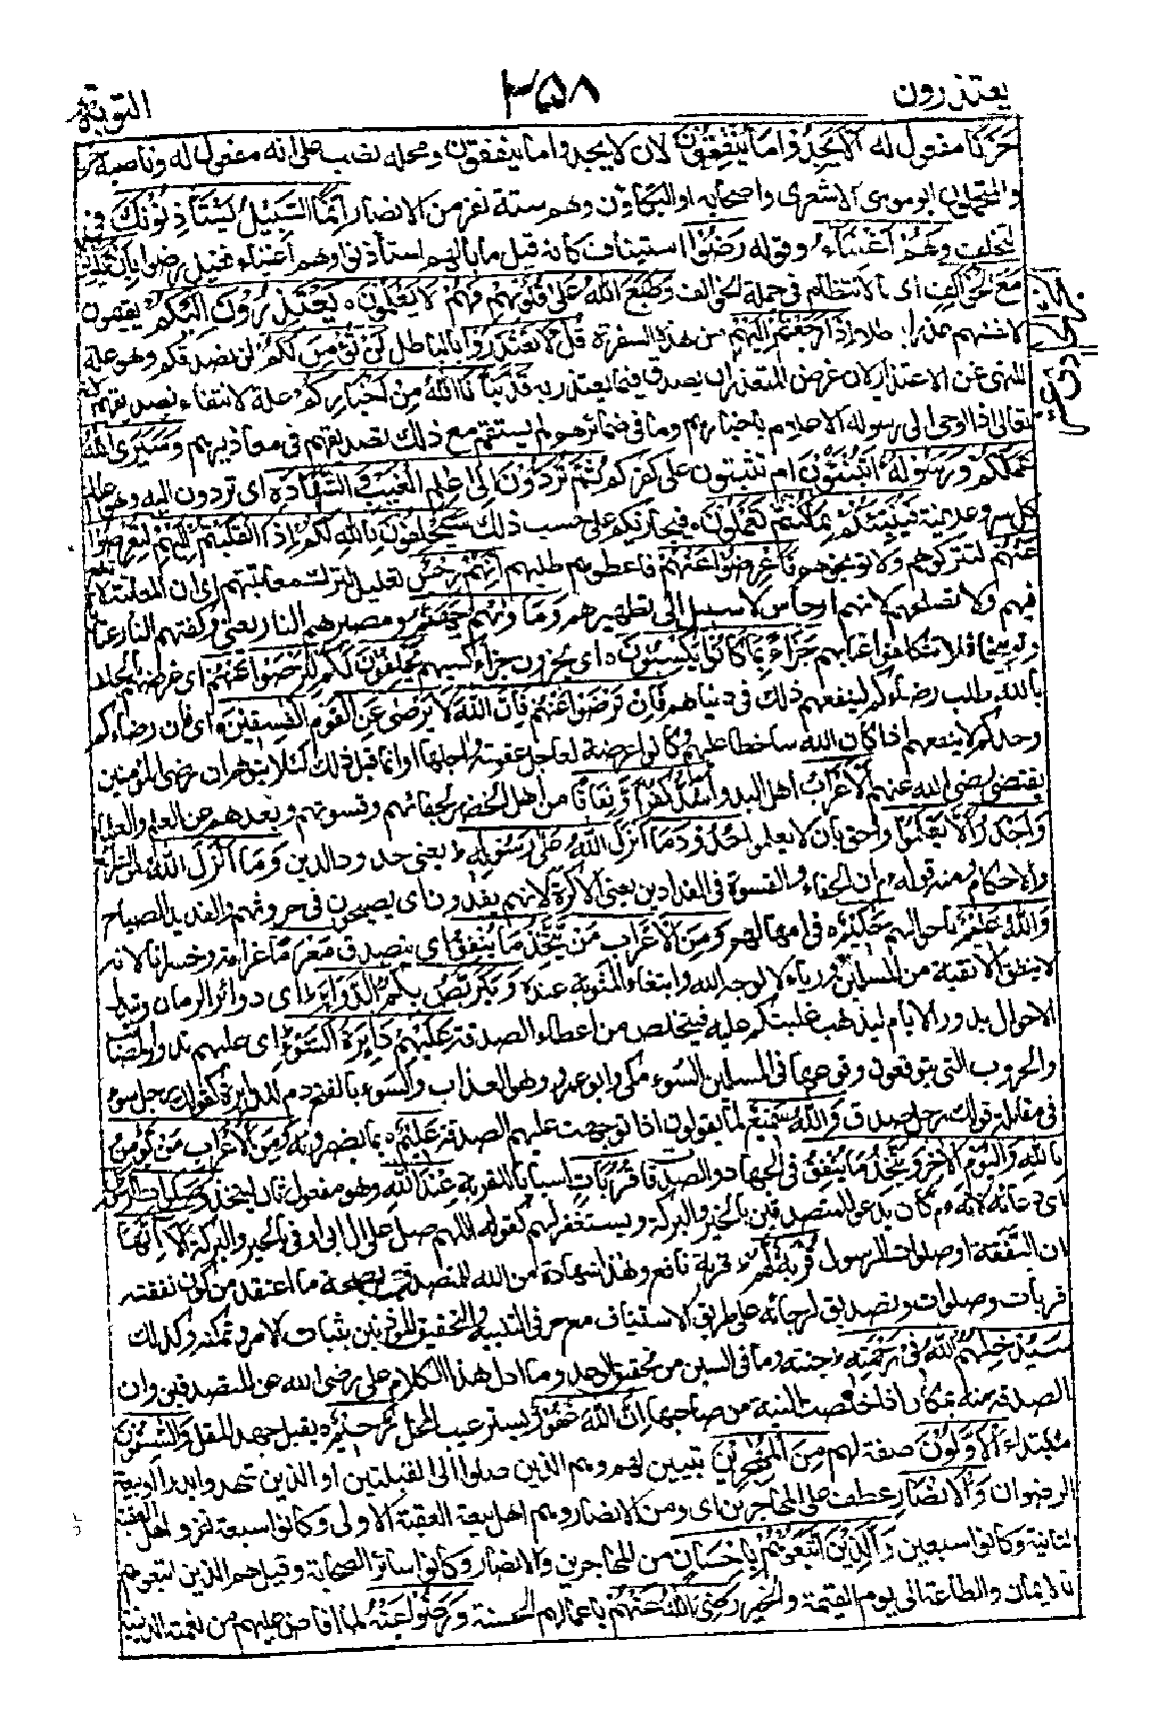 یعتذرون
۳۵۸
التوبة
حَزَنًا مفعول له اَلَّا يَجِدُوْا مَا يُنْفِقُوْنَ لان لا يجدوا ما ينفقون ومحله نصب على انه مفعول له وناصبه حزنا
والمستحملون ابو موسى الاشعرى واصحابه او البكاؤن وهم ستة نفر من الانصار اِنَّمَا السَّبِيْلُ عَلَى الَّذِيْنَ يَسْتَأْذِنُوْنَكَ فى
التخلف وَهُمْ اَغْنِيَآءُ وقوله رَضُوْا استيناف كانه قيل ما بالهم استأذنوا وهم أغنياء فقيل رضوا بِاَنْ يَّكُوْنُوْا
مَعَ الْخَوَالِفِ اى بالانتظام فى جملة الخوالف وَطَبَعَ اللّٰهُ عَلٰى قُلُوْبِهِمْ فَهُمْ لَا يَعْلَمُوْنَ ه يَعْتَذِرُوْنَ اِلَيْكُمْ يقيمون
لانفسهم عذرا باطلا اِذَا رَجَعْتُمْ اِلَيْهِمْ من هذه السفرة قُلْ لَّا تَعْتَذِرُوْا بالباطل لَنْ نُّؤْمِنَ لَكُمْ لن نصدقكم وهو علة
للنهى عن الاعتذار لان غرض المعتذر ان يصدق فيما يعتذر به قَدْ نَبَّاَنَا اللّٰهُ مِنْ اَخْبَارِكُمْ علة لانتفاء تصديقهم لانه
تعالى اذا اوحى الى رسوله الاعلام باخبارهم وما فى ضمائرهم لم يستقم مع ذلك تصديقهم فى معاذيرهم وَسَيَرَى اللّٰهُ
عَمَلَكُمْ وَرَسُوْلُهٗ اتنيبون ام تثبتون على كفركم ثُمَّ تُرَدُّوْنَ اِلٰى عٰلِمِ الْغَيْبِ وَالشَّهَادَةِ اى تردون اليه وهو عالم
كل سر وعلانية فَيُنَبِّئُكُمْ بِمَا كُنْتُمْ تَعْمَلُوْنَ ه فيجازيكم على حسب ذلك سَيَحْلِفُوْنَ بِاللّٰهِ لَكُمْ اِذَا انْقَلَبْتُمْ اِلَيْهِمْ لِتُعْرِضُوْا
عَنْهُمْ لتتركوهم ولا توبخوهم فَاَعْرِضُوْا عَنْهُمْ فاعطوهم طلبهم اِنَّهُمْ رِجْسٌ تعليل لترك معاتبتهم اى ان المعاتبة لا تنفع
فيهم ولا تصلحهم لانهم ارجاس لا سبيل الى تطهيرهم وَمَاْوٰىهُمْ جَهَنَّمُ ومصيرهم النار يعنى وكفتهم النار عتابا
وتوبيخا فلا تتكلفوا عتابهم جَزَآءً بِمَا كَانُوْا يَكْسِبُوْنَ ه اى يجزون جزاء كسبهم يَحْلِفُوْنَ لَكُمْ لِتَرْضَوْا عَنْهُمْ اى غرضهم بالحلف
بالله طلب رضاءكم لينفعهم ذلك فى دنياهم فَاِنْ تَرْضَوْا عَنْهُمْ فَاِنَّ اللّٰهَ لَا يَرْضٰى عَنِ الْقَوْمِ الْفٰسِقِيْنَ ه اى فان رضاءكم
وحدكم لا ينفعهم اذا كان الله ساخطا عليهم وكانوا عرضة لعاجل عقوبته واجلها وانما قيل ذلك لئلا يتوهم ان رضى المؤمنين
يقتضى رضى الله عنهم اَلْاَعْرَابُ اهل البدو اَشَدُّ كُفْرًا وَّنِفَاقًا من اهل الحضر لجفائهم وقسوتهم وبعدهم عن العلم والعلماء
وَاَجْدَرُ اَلَّا يَعْلَمُوْا واحق بان لا يعلموا حُدُوْدَ مَا اَنْزَلَ اللّٰهُ عَلٰى رَسُوْلِهٖ ط يعنى حدود الدين وَمَا اَنْزَلَ اللّٰهُ من الشرائع
والاحكام ومنه قوله ۴ ان الجفاء والقسوة فى الفدادين يعنى الاكرة لانهم يفدون اى يصيحون فى حروثهم والفديد الصياح
وَاللّٰهُ عَلِيْمٌ باحوالهم حَكِيْمٌ ه فى امهالهم وَمِنَ الْاَعْرَابِ مَنْ يَّتَّخِذُ مَا يُنْفِقُ اى يتصدق مَغْرَمًا غرامة وخسرانا لانه
لا ينفق الا تقية من المسلمين ورياء لا لوجه الله وابتغاء المثوبة عنده وَيَتَرَبَّصُ بِكُمُ الدَّوَآئِرَ ط اى دوائر الزمان وتبدل
الاحوال بدور الايام لتذهب غلبتكم عليه فيتخلص من اعطاء الصدقة عَلَيْهِمْ دَآئِرَةُ السَّوْءِ ط اى عليهم تدور المصائب
والحروب التى يتوقعون وقوعها فى المسلمين السُّوء مكى وابو عمرو وهو العذاب والسَّوء بالفتح ذم للدائرة كقولك رجل سوء
فى مقابلة قولك رجل صدق وَاللّٰهُ سَمِيْعٌ لما يقولون اذا توجهت عليهم الصدقة عَلِيْمٌ ه بما يضمرونه وَمِنَ الْاَعْرَابِ مَنْ يُّؤْمِنُ
بِاللّٰهِ وَالْيَوْمِ الْاٰخِرِ وَيَتَّخِذُ مَا يُنْفِقُ فى الجهاد والصدقات قُرُبٰتٍ اسبابا للقربة عِنْدَ اللّٰهِ وهو مفعول ثان ليتخذ وَصَلَوٰتِ الرَّسُوْلِ
اى دعائه لانه ۴ كان يدعو للمتصدقين بالخير والبركة ويستغفر لهم كقوله اللهم صل على ال ابى اوفى بالخير والبركة اَلَا اِنَّهَا
ان النفقة او صلوات الرسول قُرْبَةٌ لَّهُمْ ط قربة نافع وهذا شهادة من الله للمتصدق بصحة ما اعتقد من كون نفقته
قربات وصلوات وتصديق لرجائه على طريق الاستيناف مع حرفى التنبيه والتحقيق المؤذنين بثبات الامر وتمكنه وكذلك
سَيُدْخِلُهُمُ اللّٰهُ فِىْ رَحْمَتِهٖ ط جنته وما فى السين من تحقيق الوعد وما ادل هذا الكلام على رضى الله عن المتصدقين وان
الصدقة منه بمكان اذا خلصت النية من صاحبها اِنَّ اللّٰهَ غَفُوْرٌ يستر عيب المخل رَّحِيْمٌ ه يقبل جهد المقل وَالسّٰبِقُوْنَ
مبتداء اَلْاَوَّلُوْنَ صفة لهم مِنَ الْمُهٰجِرِيْنَ تبيين لهم وهم الذين صلوا الى القبلتين او الذين شهدوا بدرا او بيعة
الرضوان وَالْاَنْصَارِ عطف على المهاجرين اى ومن الانصار وهم اهل بيعة العقبة الاولى وكانوا سبعة نفر واهل العقبة
الثانية وكانوا سبعين وَالَّذِيْنَ اتَّبَعُوْهُمْ بِاِحْسَانٍ من المهاجرين والانصار وكانوا سائر الصحابة وقيل هم الذين اتبعوهم
بالايمان والطاعة الى يوم القيمة والخبر رَضِىَ اللّٰهُ عَنْهُمْ باعمالهم الحسنة وَرَضُوْا عَنْهُ لما افاض عليهم من نعمته الدينية